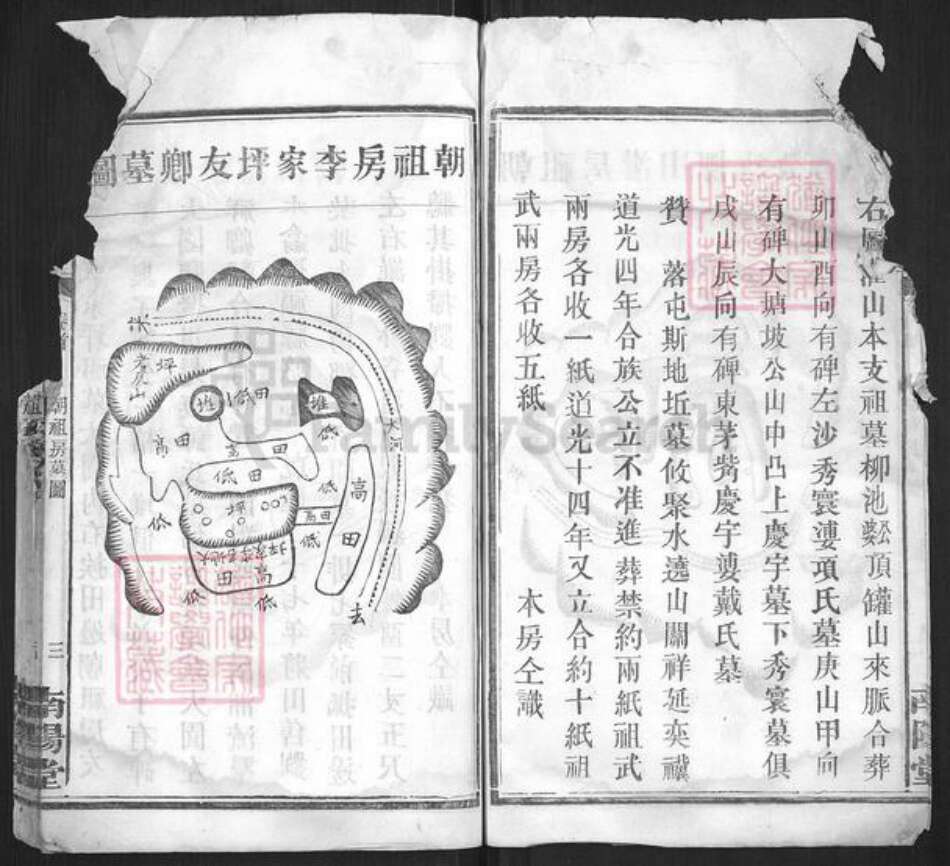 右圖 山本支祖墓柳池 頂罐山來脈合葬
卯山酉向有碑左沙秀寰婆項氏墓庚山甲向
有碑大塘坡公山申凸上慶宇墓下秀寰墓俱
戌山辰向有碑東茅 慶宇婆戴氏墓
贊 落屯斯地坵墓攸聚水遶山關祥延奕禩
道光四年合族公立不准進葬禁約兩紙祖武
兩房各收一紙道光十四年又立合約十紙祖
武兩房各收五紙 本房仝識
朝祖房李家坪友卿墓圖
來
坪
山
堆
低田
堆
低
大河
高田
高
低田
低
高田
坪
高田
低
低
田
高
低
低
去
朝祖房墓圖
三
南陽堂
FamilySearch